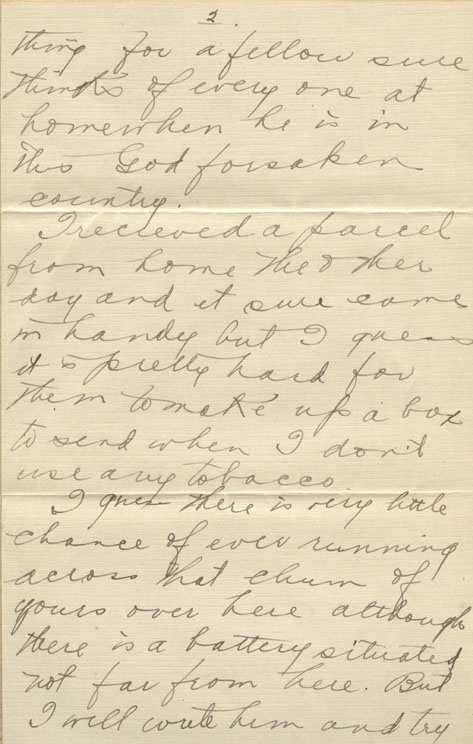 2.
thing for a fellow sure
thinks of every one at
home when he is in
this God forsaken
country.
I recieved a parcel
from home the other
day and it sure came
in handy but I guess
it s pretty hard for
them to make up a box
to send when I don't
use any tobacco.
I guess there is very little
chance of ever running
across that chum of
yours over here although
there is a battery situated
not far from here. But
I will write him and try